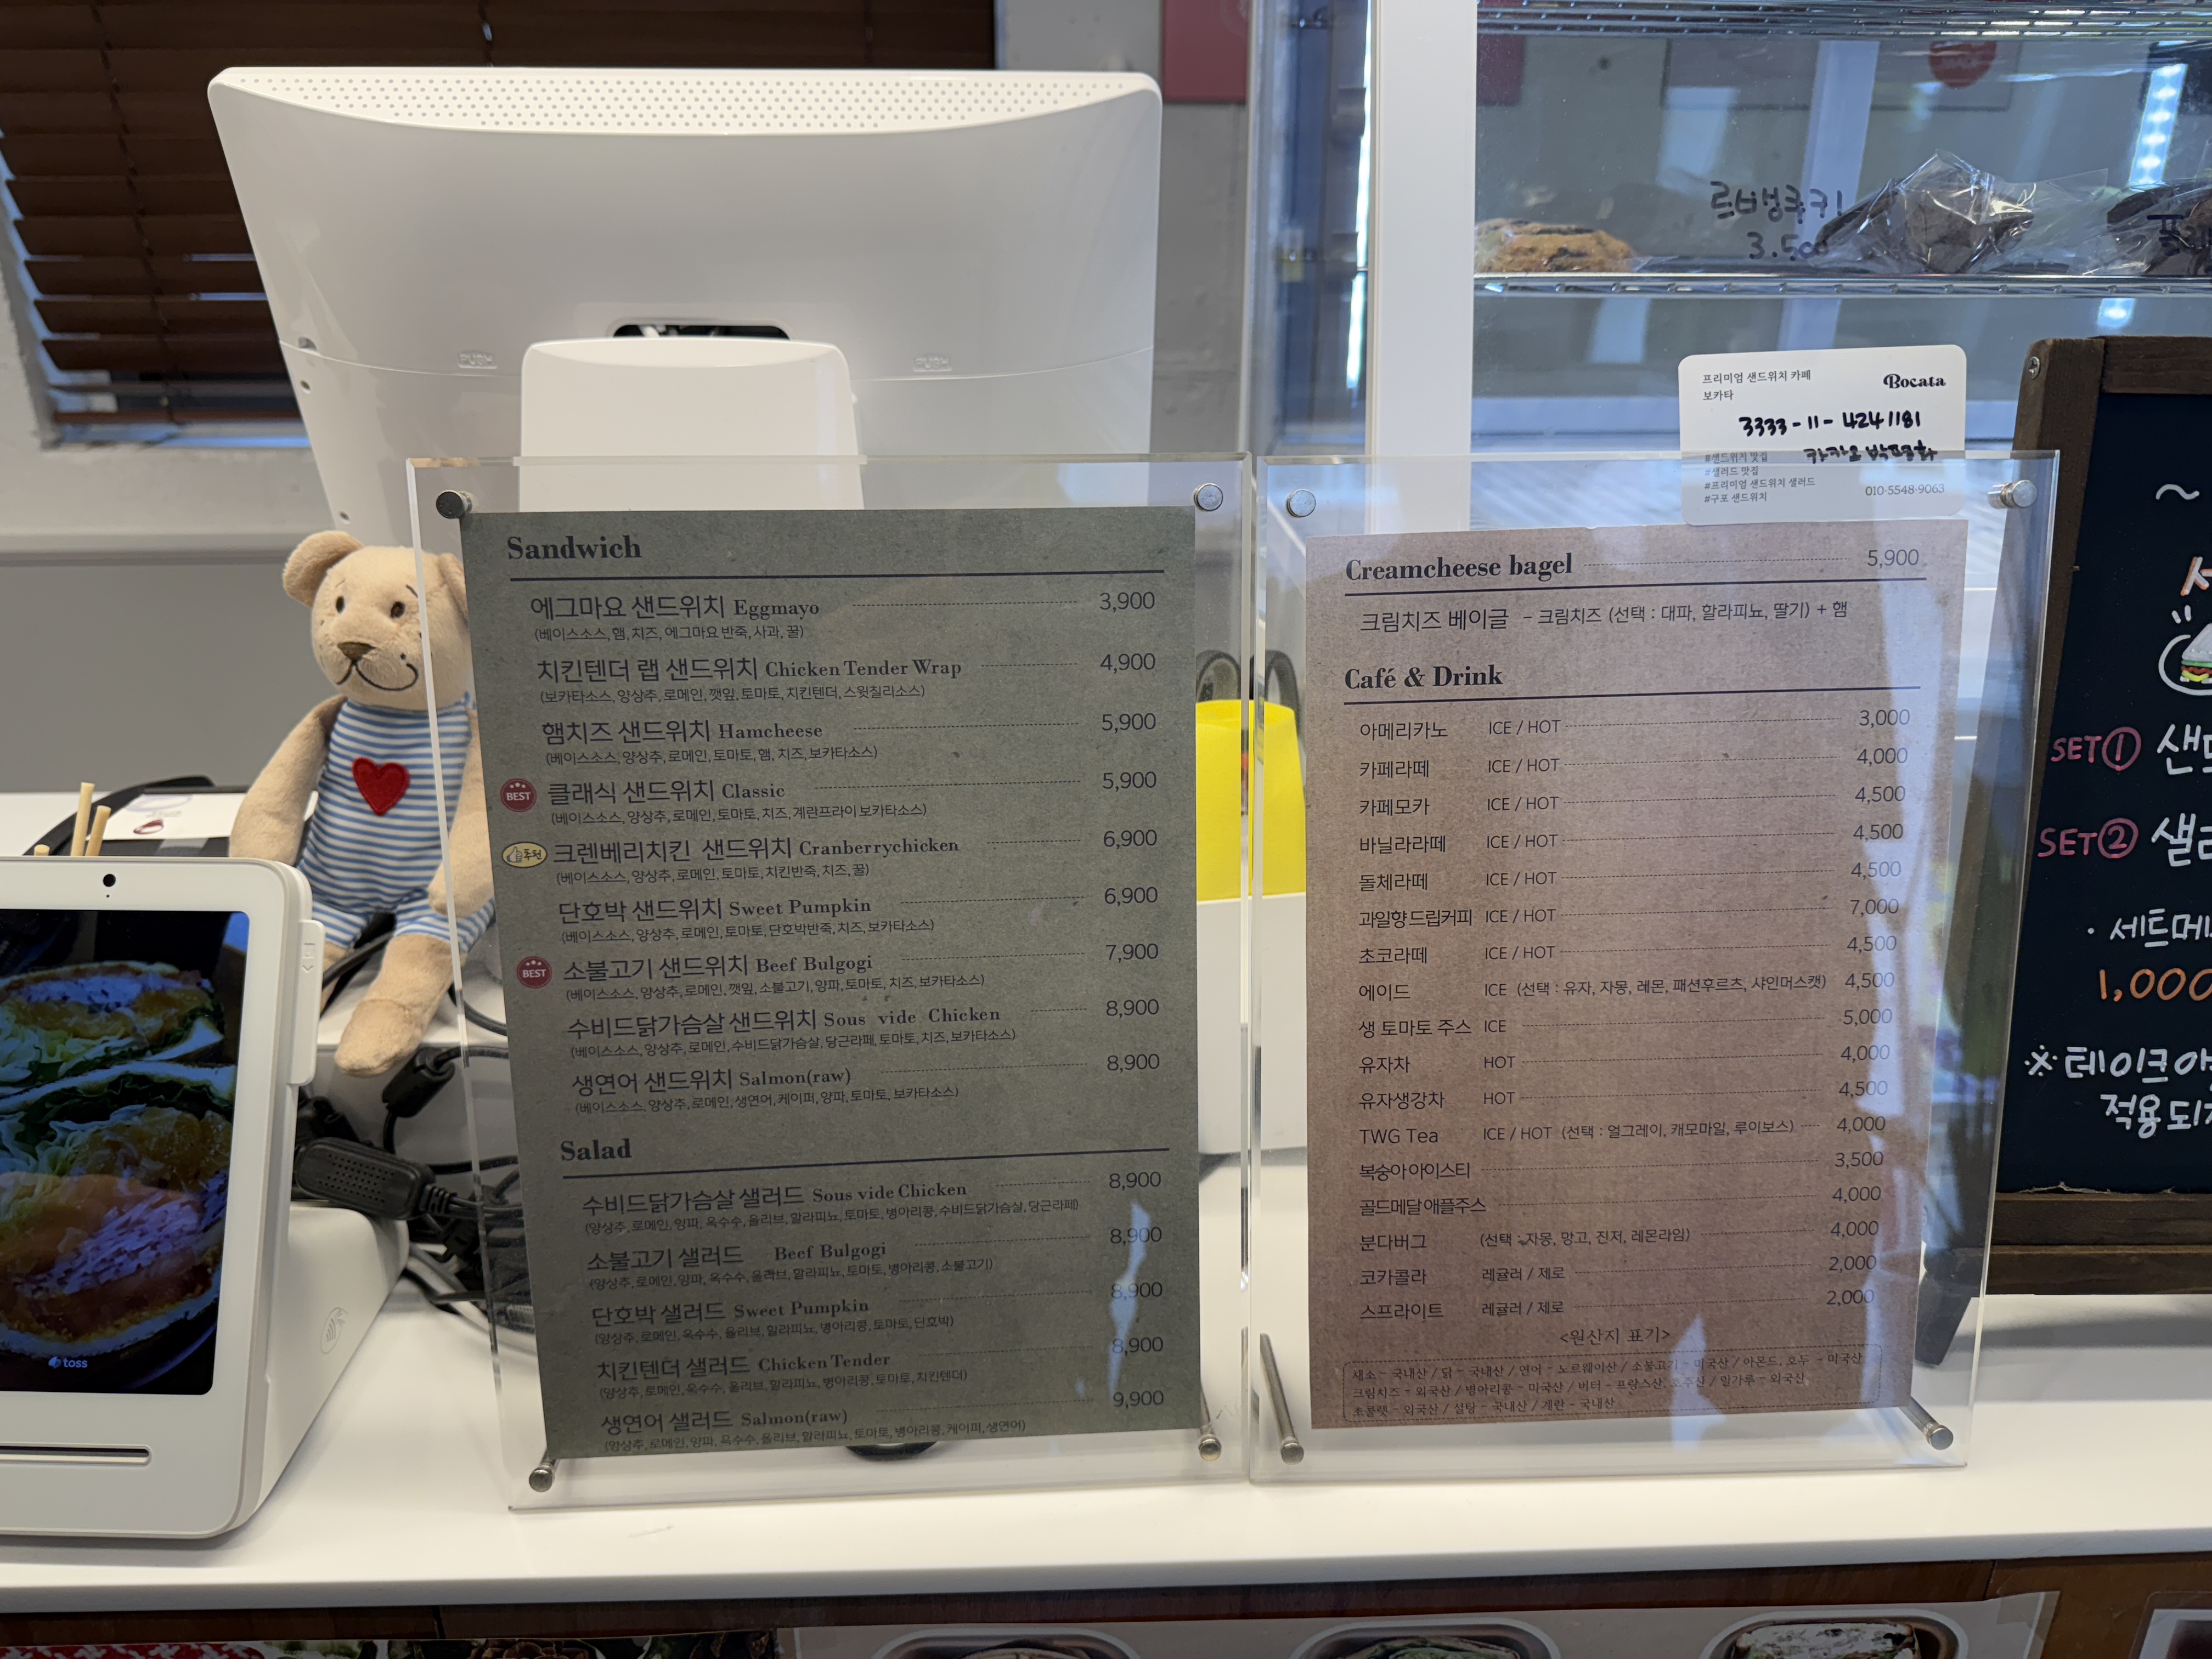 르뱅쿠키
3.500
PUSH
PUSH
프리미엄 샌드위치 카페
보카타
Bocata
3333-11-4241181
카카오
#샌드위치 맛집
#샐러드 맛집
#프리미엄 샌드위치 샐러드
#구포 샌드위치
010-5548-9063
Sandwich
에그마요 샌드위치 Eggmayo 3,900
(베이스소스, 햄, 치즈, 에그마요 반죽, 사과, 꿀)
치킨텐더 랩 샌드위치 Chicken Tender Wrap 4,900
(보카타소스, 양상추, 로메인, 깻잎, 토마토, 치킨텐더, 스윗칠리소스)
햄치즈 샌드위치 Hamcheese 5,900
(베이스소스, 양상추, 로메인, 토마토, 햄, 치즈, 보카타소스)
BEST 클래식 샌드위치 Classic 5,900
(베이스소스, 양상추, 로메인, 토마토, 치즈, 계란프라이 보카타소스)
추천 크렌베리치킨 샌드위치 Cranberrychicken 6,900
(베이스소스, 양상추, 로메인, 토마토, 치킨반죽, 치즈, 꿀)
단호박 샌드위치 Sweet Pumpkin 6,900
(베이스소스, 양상추, 로메인, 토마토, 단호박반죽, 치즈, 보카타소스)
BEST 소불고기 샌드위치 Beef Bulgogi 7,900
(베이스소스, 양상추, 로메인, 깻잎, 소불고기, 양파, 토마토, 치즈, 보카타소스)
수비드닭가슴살 샌드위치 Sous vide Chicken 8,900
(베이스소스, 양상추, 로메인, 수비드닭가슴살, 당근라페, 토마토, 치즈, 보카타소스)
생연어 샌드위치 Salmon(raw) 8,900
(베이스소스, 양상추, 로메인, 생연어, 케이퍼, 양파, 토마토, 보카타소스)
Salad
수비드닭가슴살 샐러드 Sous vide Chicken 8,900
(양상추, 로메인, 양파, 옥수수, 올리브, 할라피뇨, 토마토, 병아리콩, 수비드닭가슴살, 당근라페)
소불고기 샐러드 Beef Bulgogi 8,900
(양상추, 로메인, 양파, 옥수수, 올리브, 할라피뇨, 토마토, 병아리콩, 소불고기)
단호박 샐러드 Sweet Pumpkin 8,900
(양상추, 로메인, 옥수수, 올리브, 할라피뇨, 병아리콩, 토마토, 단호박)
치킨텐더 샐러드 Chicken Tender 8,900
(양상추, 로메인, 옥수수, 올리브, 할라피뇨, 병아리콩, 토마토, 치킨텐더)
생연어 샐러드 Salmon(raw) 9,900
(양상추, 로메인, 양파, 옥수수, 올리브, 할라피뇨, 토마토, 병아리콩, 케이퍼, 생연어)
Creamcheese bagel 5,900
크림치즈 베이글 - 크림치즈 (선택 : 대파, 할라피뇨, 딸기) + 햄
Café & Drink
아메리카노 ICE / HOT 3,000
카페라떼 ICE / HOT 4,000
카페모카 ICE / HOT 4,500
바닐라라떼 ICE / HOT 4,500
돌체라떼 ICE / HOT 4,500
과일향 드립커피 ICE / HOT 7,000
초코라떼 ICE / HOT 4,500
에이드 ICE (선택 : 유자, 자몽, 레몬, 패션후르츠, 샤인머스캣) 4,500
생 토마토 주스 ICE 5,000
유자차 HOT 4,000
유자생강차 HOT 4,500
TWG Tea ICE / HOT (선택 : 얼그레이, 캐모마일, 루이보스) 4,000
복숭아 아이스티 3,500
골드메달 애플주스 4,000
분다버그 (선택 : 자몽, 망고, 진저, 레몬라임) 4,000
코카콜라 레귤러 / 제로 2,000
스프라이트 레귤러 / 제로 2,000
<원산지 표기>
채소 - 국내산 / 닭 - 국내산 / 연어 - 노르웨이산 / 소불고기 - 미국산 / 아몬드, 호두 - 미국산
크림치즈 - 외국산 / 병아리콩 - 미국산 / 버터 - 프랑스산, 호주산 / 밀가루 - 외국산
초콜렛 - 외국산 / 설탕 - 국내산 / 계란 - 국내산
~
SET①
SET②
· 세트메
1,000
※ 테이크아
적용되
toss